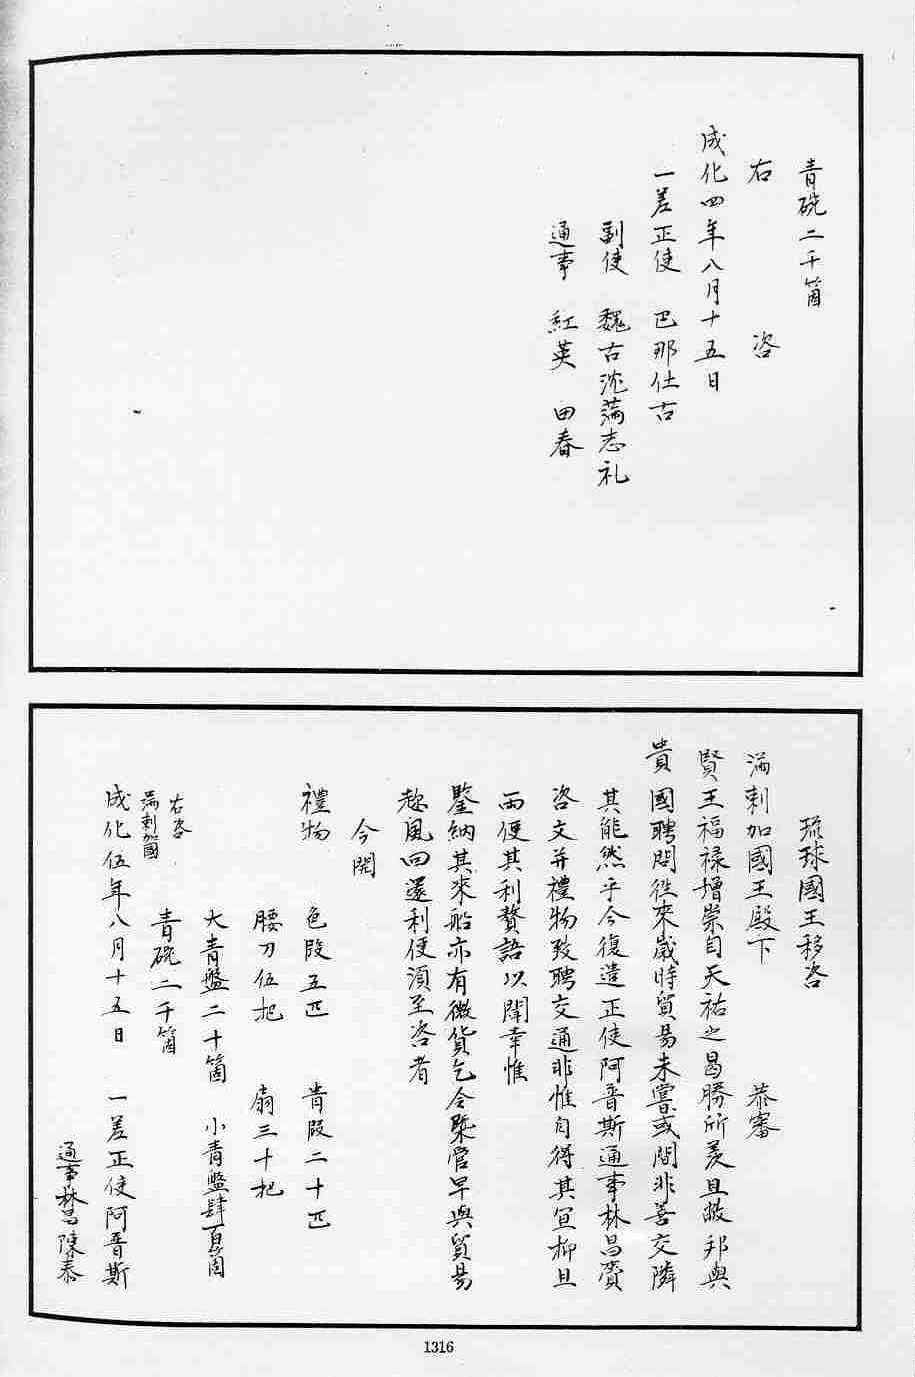 青硗二千箇
右 咨
成化四年八月十五日
一差正使 巴那仕古
副使 魏古沈滿志礼
通事 紅英 田春
琉球國王移咨
滿剌加國王殿下 恭審
賢王福禄增崇自天祐之曷勝所羨且敝邦與
貴國聘問徃來歲時貿易未嘗或間非善交隣
其能然乎今復遣正使阿普斯通事林昌賫
咨文并禮物致聘交通非惟自得其宜抑且
兩便其利贅語以闡幸惟
鑒納其來船亦有微貨乞令槩管早與貿易
趂風回還利便湏至咨者
今開
禮物 色段五匹 青段二十匹
腰刀伍把 扇三十把
大青盤二十箇 小青盤肆百箇
青硗二千箇
右咨
滿剌加國
成化伍年八月十五日 一差正使阿普斯
通事林昌陳泰
1316